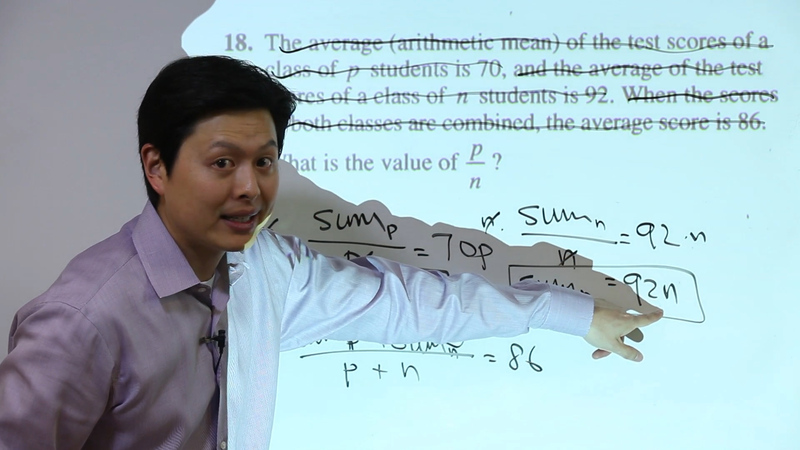 18. The average (arithmetic mean) of the test scores of a
class of p students is 70, and the average of the test
scores of a class of n students is 92. When the scores
both classes are combined, the average score is 86.
What is the value of p/n ?
sum_p / = 70p n. sum_n / n = 92.n
= 92n
sum_n / p + n = 86